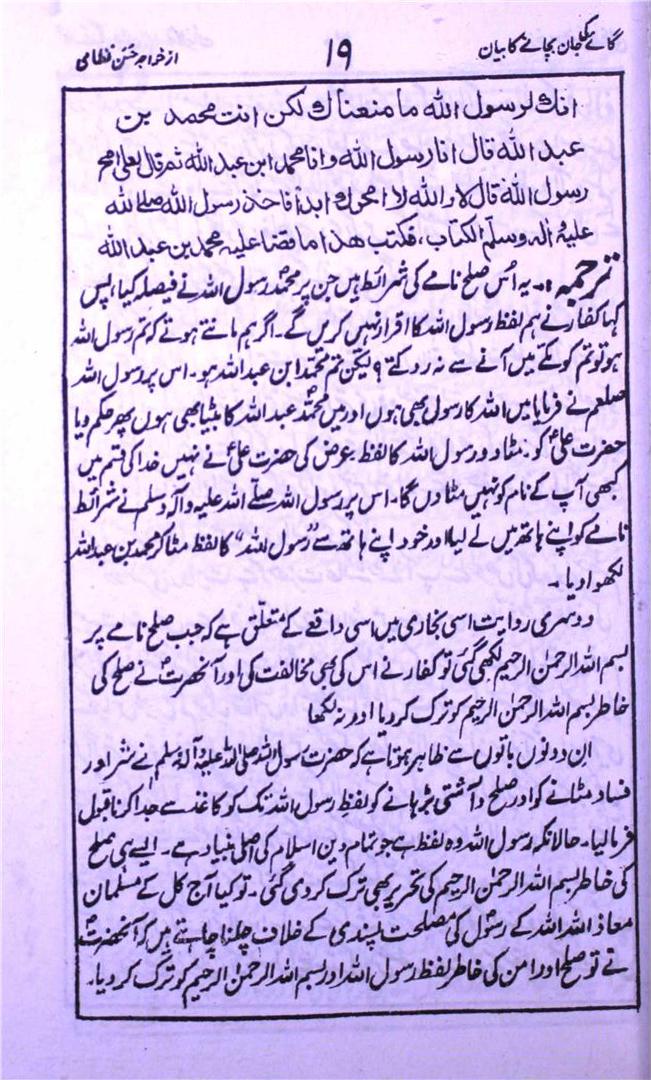 گائے کی جان بچانے کا بیان
۱۹
از خواجہ حسن نظامی
انك لرسول الله ما منعناك لكن انت محمد بن
عبد الله قال انا رسول الله وانا محمد ابن عبد الله ثم قال لعلى امح
رسول الله قال لا والله لا امحوك ابدا فاخذ رسول الله صلے الله
عليه واله وسلم الكتاب، فكتب هذا ما قضا عليه محمد بن عبد الله
ترجمہ:۔ یہ اُس صلح نامے کی شرائط ہیں جن پر محمدؐ رسول اللہ نے فیصلہ کیا، پس
کہا کفار نے ہم لفظ رسول اللہ کا اقرار نہیں کریں گے۔ اگر ہم مانتے ہوتے کہ تم رسول اللہ
ہو تو تم کو مکے میں آنے سے نہ روکتے؟ لیکن تم محمدؐ ابن عبد اللہ ہو۔ اس پر رسول اللہ
صلعم نے فرمایا میں اللہ کا رسول بھی ہوں اور میں محمدؐ عبد اللہ کا بیٹا بھی ہوں پھر حکم دیا
حضرت علیؑ کو: مٹا دو رسول اللہ کا لفظ۔ عرض کی حضرت علیؑ نے نہیں خدا کی قسم میں
کبھی آپ کے نام کو نہیں مٹا دں گا۔ اس پر رسول اللہ صلّے اللہ علیہ و آلہ وسلم نے شرائط
نامے کو اپنے ہاتھ میں لے لیا اور خود اپنے ہاتھ سے "رسول للہ" کا لفظ مٹا کر محمد بن عبد اللہ
لکھوا دیا۔
دوسری روایت اسی بخاری میں اسی واقعے کے متعلّق ہے کہ جب صلح نامے پر
بسم اللہ الرحمٰن الرحیم لکھی گئی تو کفار نے اس کی بھی مخالفت کی اور آنحضرتؐ نے صلح کی
خاطر بسم اللہ الرحمٰن الرحیم کو ترک کر دیا اور نہ لکھا
ان دونوں باتوں سے ظاہر ہوتا ہے کہ حضرت رسول اللہ صلی اللہ علیہ و آلہ وسلم نے شر اور
فساد مٹانے کو اور صلح و آشتی بڑہانے کو لفظِ رسول اللہ تک کو کاغذ سے جُدا کرنا قبول
فرمالیا۔ حالانکہ رسول اللہ وہ لفظ ہے جو تمام دین اسلام کی اصلی بنیاد ہے۔ ایسے ہی صلح
کی خاطر بسم اللہ الرحمٰن الرحیم کی تحریر بھی ترک کر دی گئی۔ تو کیا آج کل کے مسلمان
معاذ اللہ اللہ کے رسولؐ کی مصلحت پسندی کے خلاف چلنا چاہتے ہیں کہ آنحضرتؐ
نے تو صلح اور امن کی خاطر لفظ رسول اللہ اور بسم اللہ الرحمٰن الرحیم کو ترک کر دیا۔